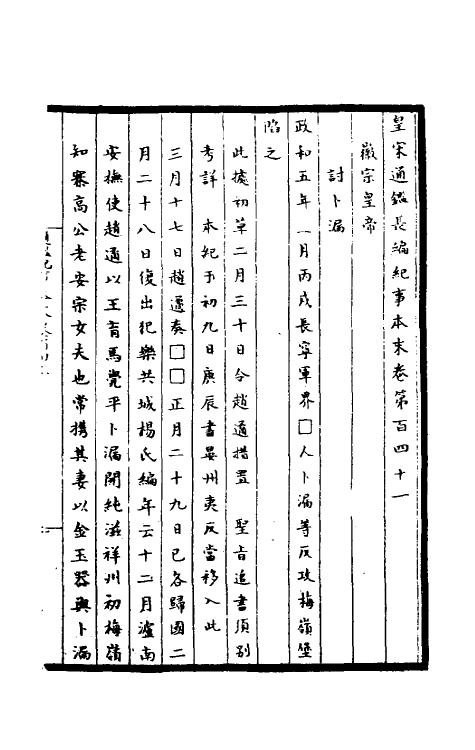 皇宋通鑑長編紀事本末卷第百四十一
徽宗皇帝
討卜漏
政和五年一月丙戌長寧軍界□人卜漏等反攻梅嶺堡
陷之
此據初草二月三十日令趙遹措置　聖旨追書須别
考詳　本紀于初九日庚辰書晏州夷反當移入此
三月十七日趙遹奏□□正月二十九日已各歸國二
月二十八日復出犯樂共城楊氏編年云十二月瀘南
安撫使趙遹以王育馬覺平卜漏開純滋祥州初梅嶺
知寨高公老妻宗女夫也常携其妻以金玉器與卜漏